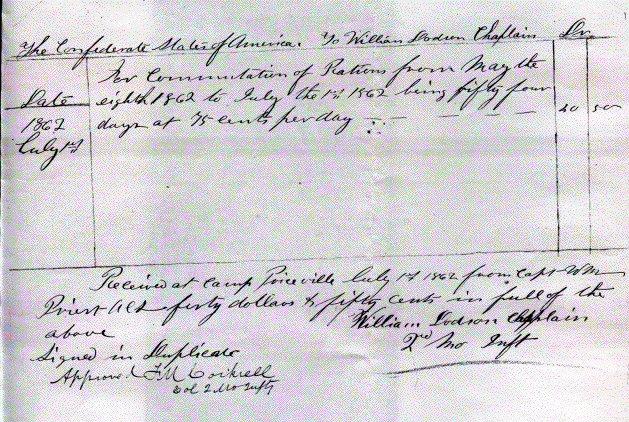 The Confederate States of America. To William Dodson Chaplain Dr.
For Commutation of Rations from May the
Date eighth 1862 to July the 1st 1862 being fifty four
1862 days at 75 cents per day 40 50
July 1st
Received at Camp Priceville July 1st 1862 from Capt Wm
Priest forty dollars & fifty cents in full of the
above William Dodson Chaplain
Signed in Duplicate 2nd Mo Inft
Approved F M Cockrell
Col 2 Mo Infty